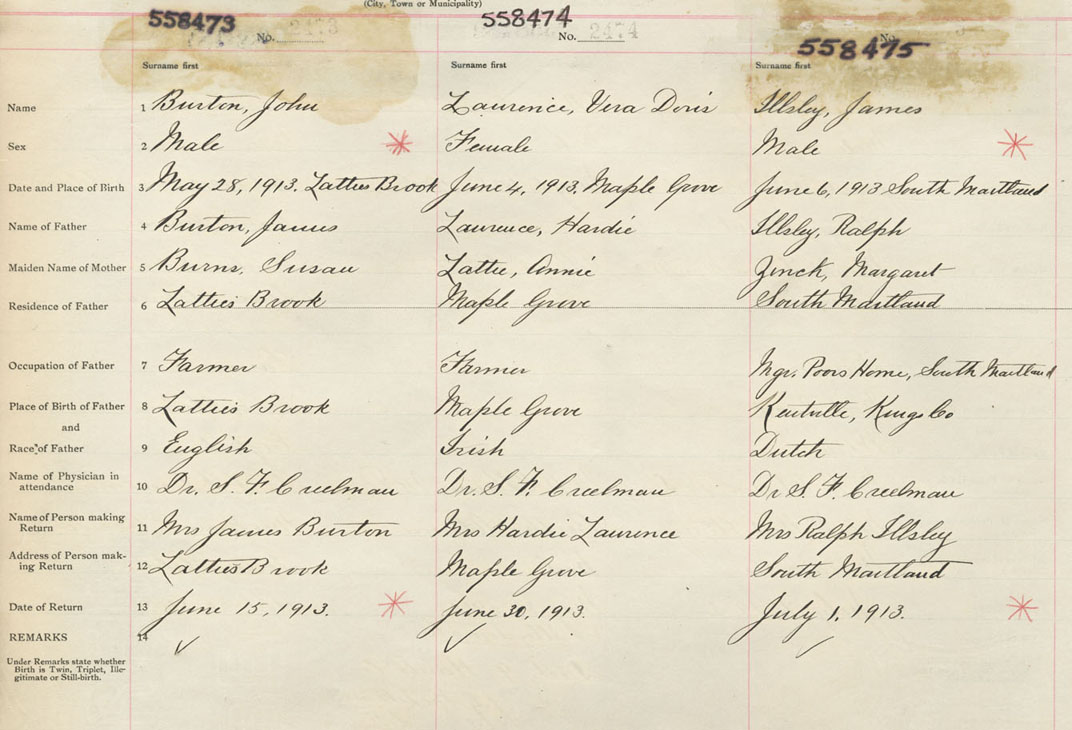 (City, Town or Municipality)
558473 558474 558475
No. 2473 No. 2474 No.
Surname first Surname first Surname first
Name 1 Burton, John Laurence, Vera Doris Illsley, James
Sex 2 Male Female Male
Date and Place of Birth 3 May 28, 1913, Latties Brook June 4, 1913, Maple Grove June 6, 1913 South Maitland
Name of Father 4 Burton, James Laurence, Hardie Illsley, Ralph
Maiden Name of Mother 5 Burns, Susan Lattie, Annie Zinck, Margaret
Residence of Father 6 Latties Brook Maple Grove South Maitland
Occupation of Father 7 Farmer Farmer Mgr. Poors Home, South Maitland
Place of Birth of Father 8 Latties Brook Maple Grove Kentville, Kings Co
and
Race of Father 9 English Irish Dutch
Name of Physician in
attendance 10 Dr. S. F. Creelman Dr. S. F. Creelman Dr S. F. Creelman
Name of Person making
Return 11 Mrs James Burton Mrs Hardie Laurence Mrs Ralph Illsley
Address of Person mak-
ing Return 12 Latties Brook Maple Grove South Maitland
Date of Return 13 June 15, 1913. June 30, 1913. July 1, 1913.
REMARKS 14
Under Remarks state whether
Birth is Twin, Triplet, Ille-
gitimate or Still-birth.